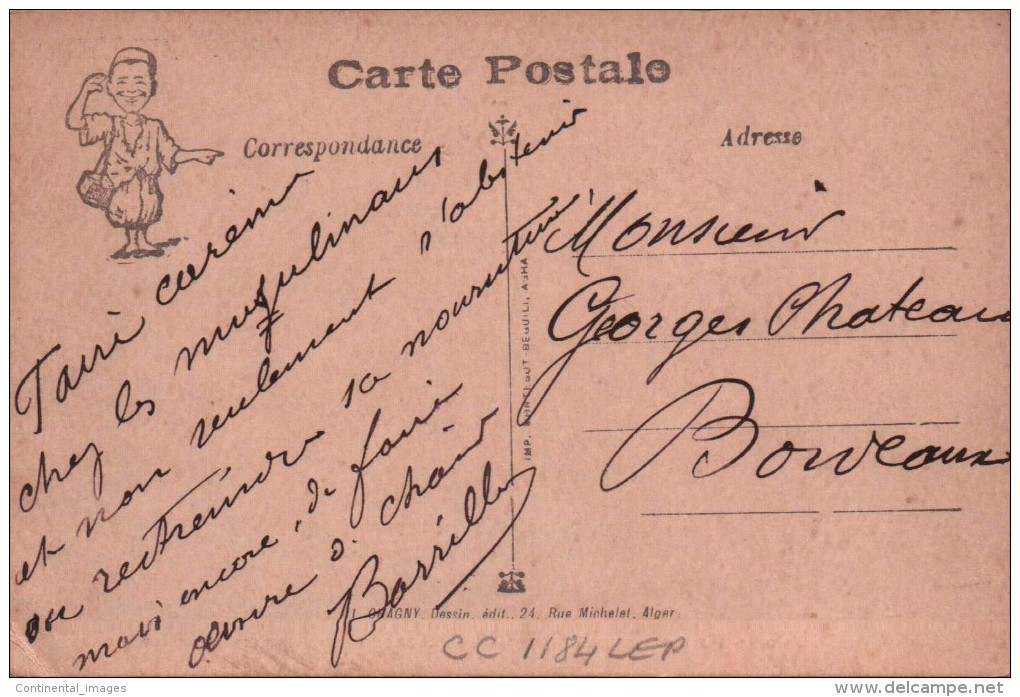 Carte Postale
Correspondance
Adresse
Faire carême
chez les musulmans
est non seulement s'abstenir
ou restreindre sa nourriture
mais encore, de faire
œuvre d. chair
Barrillo
Monsieur
Georges Chateau
Bordeaux
IMP. BEGUILI, AGHA
CHAGNY, Dessin. édit., 24, Rue Michelet, Alger.
CC 1184 LEP
Continental_images
www.delcampe.net